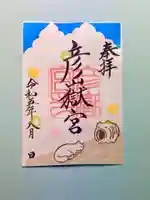 奉拝
彦山嶽宮
令和五年八月 日